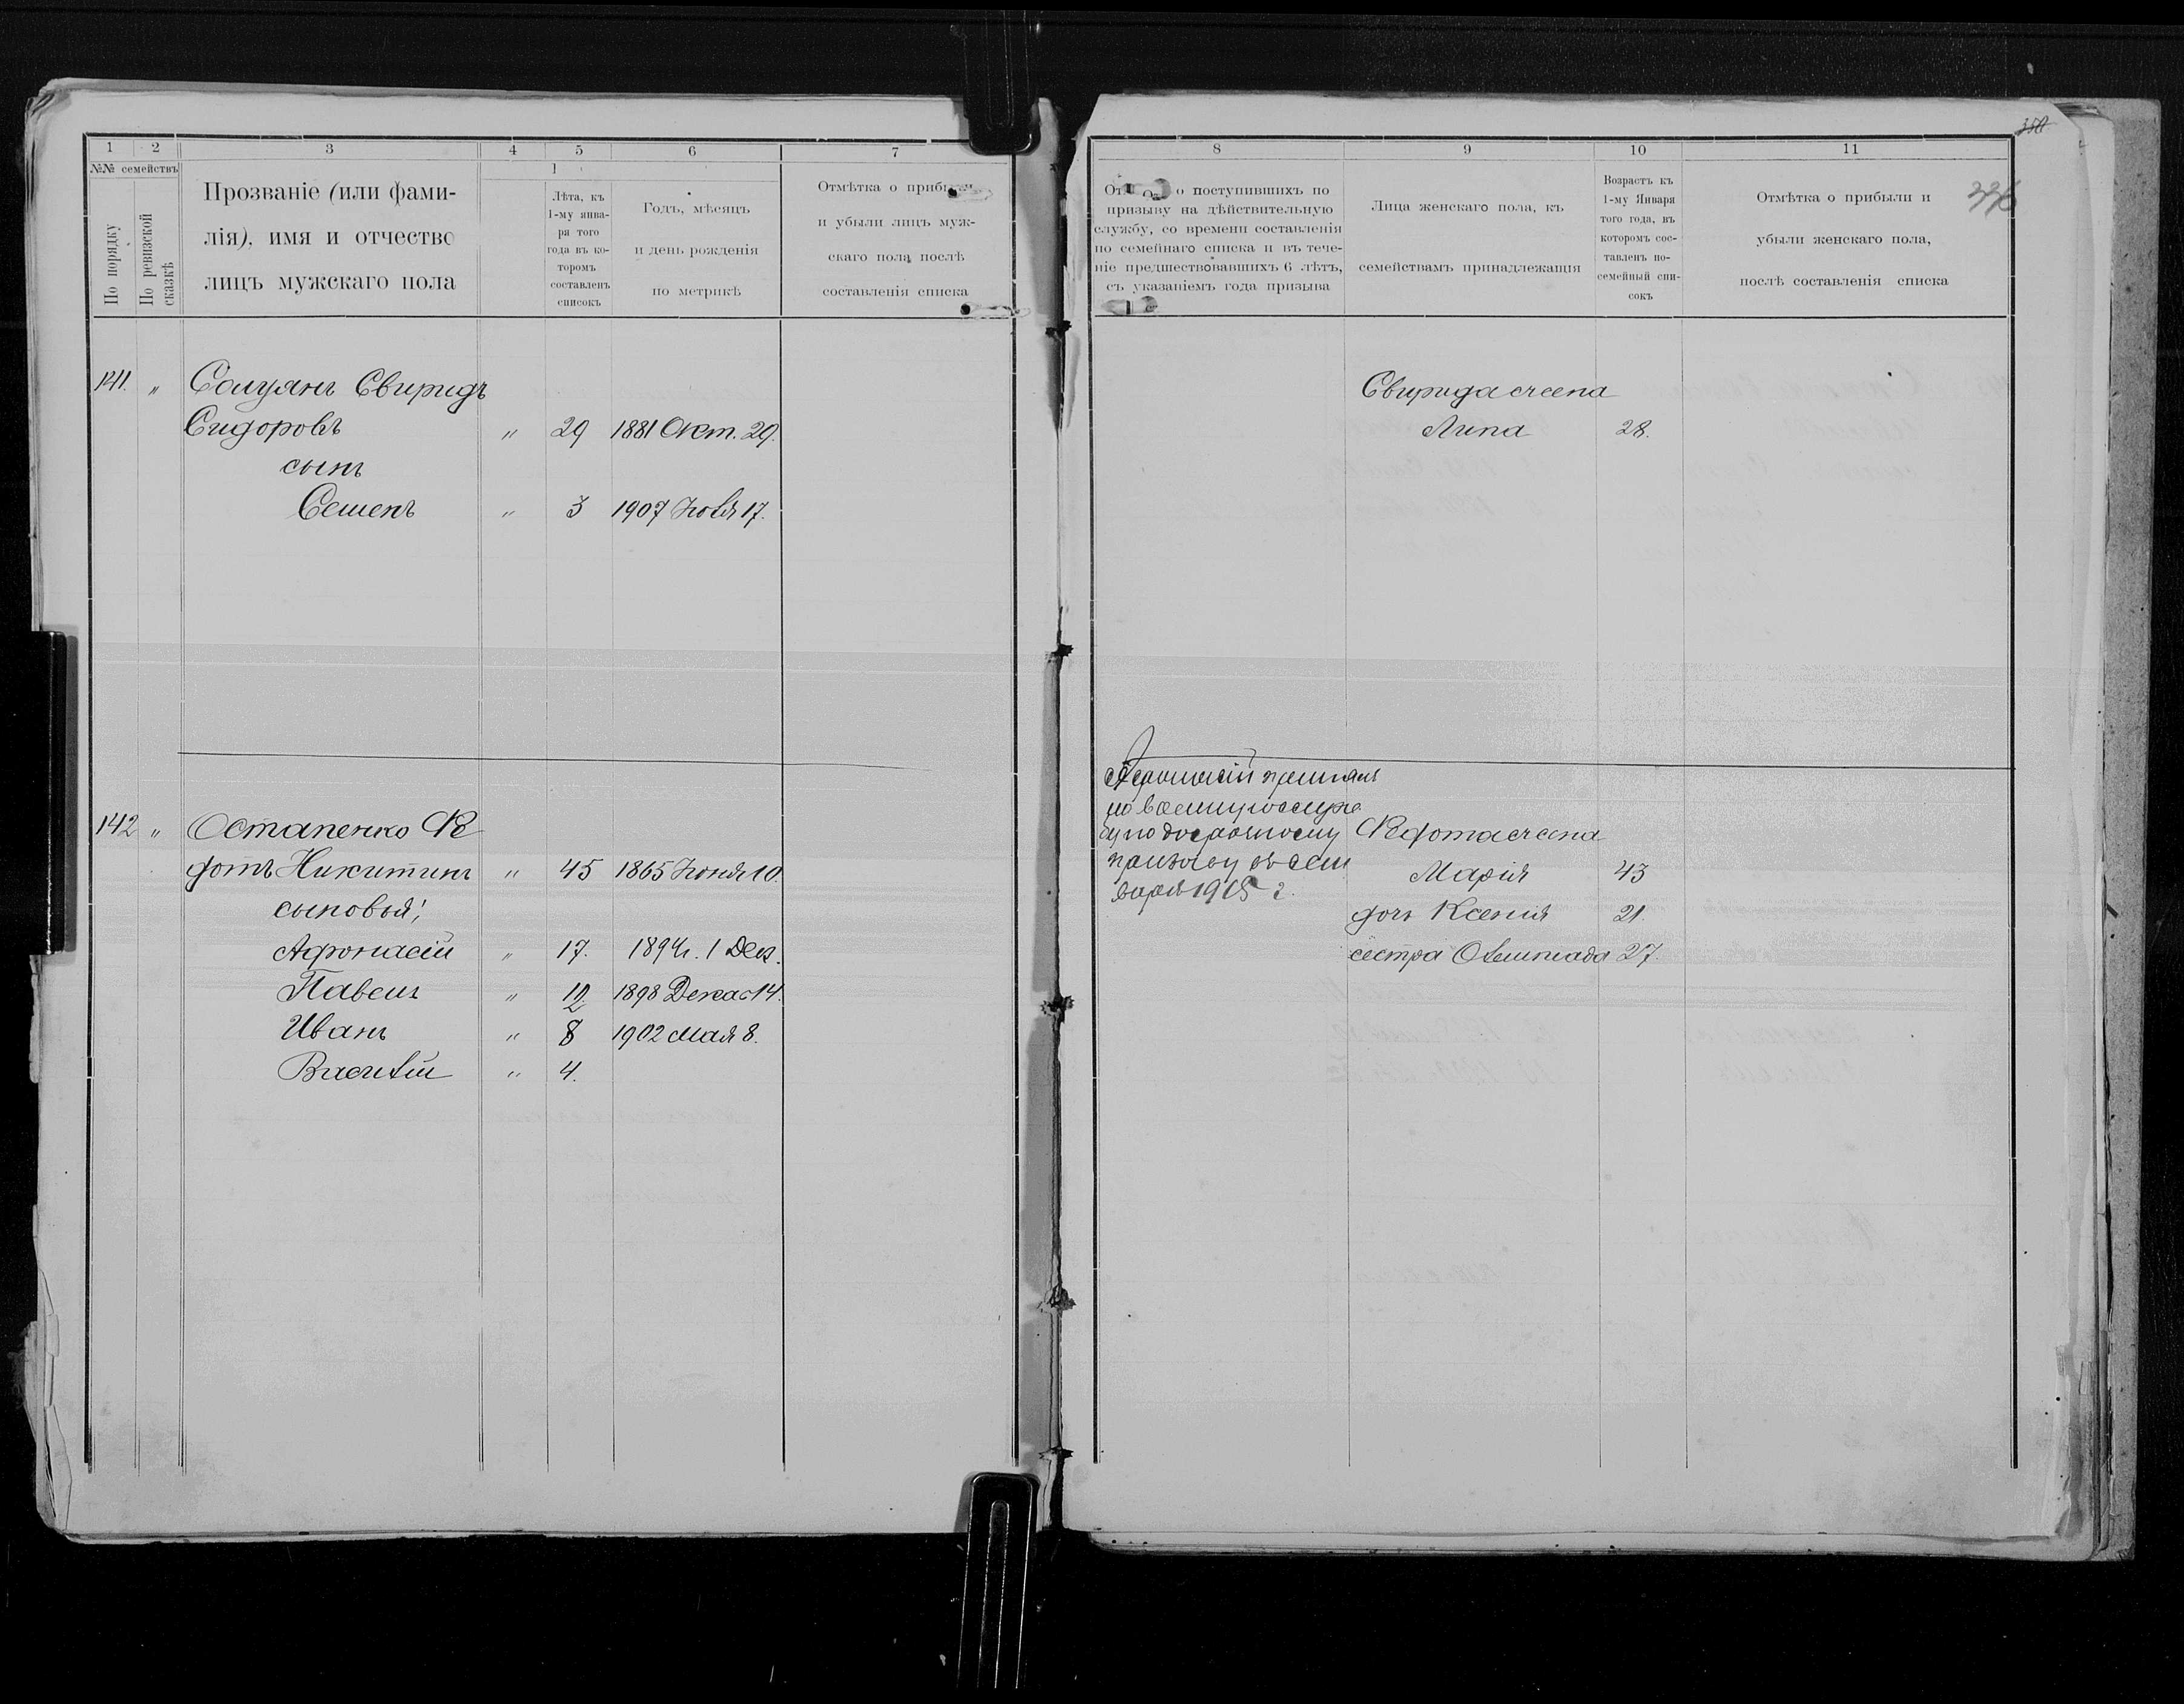 1 2 3 4 5 6 7
№№ семействъ
По порядку
По ревизской сказкѣ
Прозваніе (или фами-
лія), имя и отчество
лицъ мужскаго пола
1
Лѣта, къ
1-му янва-
ря того
года въ ко-
торомъ
составленъ
списокъ
Годъ, мѣсяцъ
и день рожденія
по метрикѣ
Отмѣтка о прибыли
и убыли лицъ муж-
скаго пола послѣ
составленія списка
141. " Свиридъ
Сидоровъ " 29 1881 Окт. 29.
сынъ
Семенъ " 3 1907 Ноя 17.
142 " Остапенко Ѳе
дотъ Никитинъ " 45 1865 Іюня 10.
сыновья:
Афонасій " 17. 1894г. 1 Дек.
Павелъ " 12 1898 Декаб 14.
Иванъ " 8 1902 Мая 8.
Василій " 4.
8 9 10 11
380
336
о поступившихъ по
призыву на дѣйствительную
службу, со времени составленія
по семейнаго списка и въ тече-
ніе предшествовавшихъ 6 лѣтъ,
съ указаніемъ года призыва
Лица женскаго пола, къ
семействамъ принадлежащія
Возрастъ къ
1-му Января
того года, въ
которомъ сос-
тавленъ по-
семейный спи-
сокъ
Отмѣтка о прибыли и
убыли женскаго пола,
послѣ составленія списка
Свирида жена
Анна 28.
Афонасій принятъ
на военную служ
бу по досрочному
призыву въ сен
1915 г.
Ѳедота жена
Марія 43
дочь Ксенія 21.
сестра Олимпіада 27.